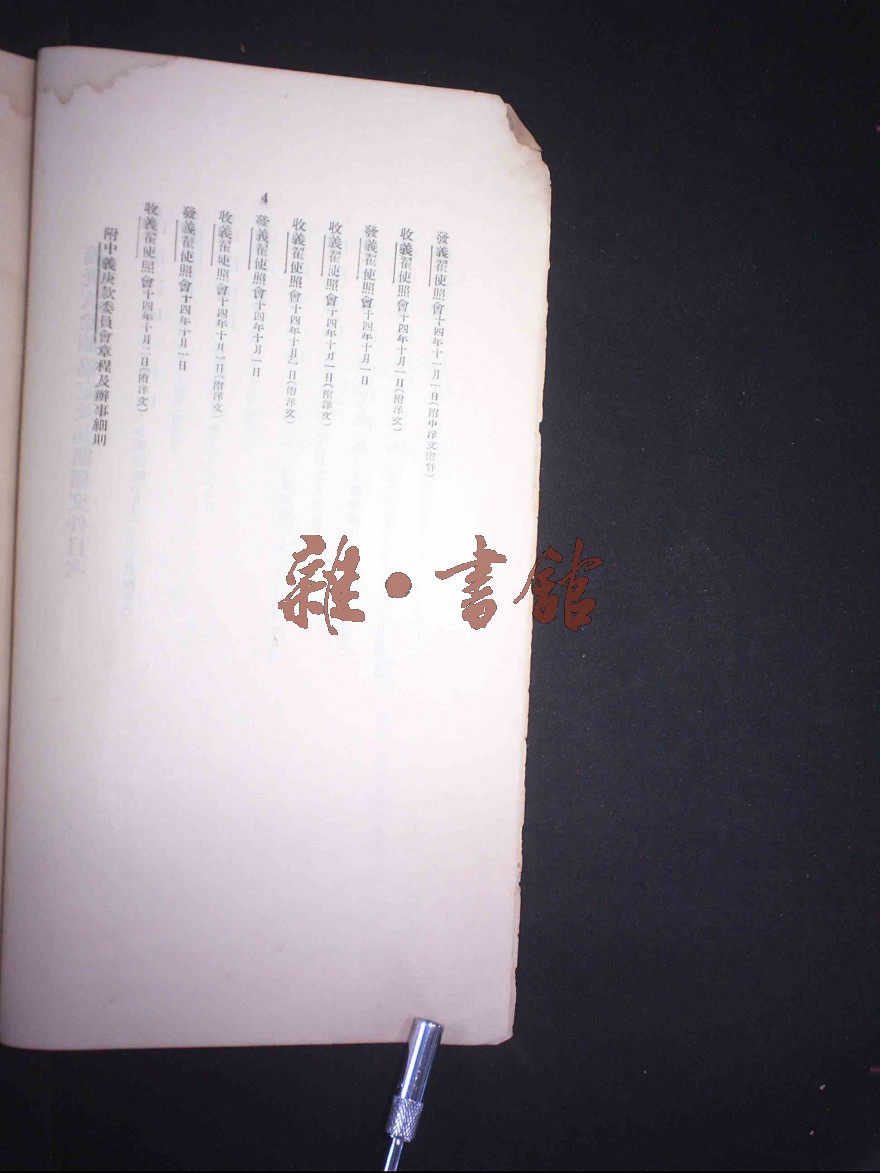 發義翟使照會十四年十一月一日(附中洋文附件)
收義翟使照會十四年十月一日(附洋文)
發義翟使照會十四年十月一日
收義翟使照會十四年十月一日(附洋文)
收義翟使照會十四年十月一日(附洋文)
4
發義翟使照會十四年十月一日
收義翟使照會十四年十月一日(附洋文)
發義翟使照會十四年十月一日
收義翟使照會十四年十月二日(附洋文)
附中義庚款委員會章程及辦事細則
雜·書館